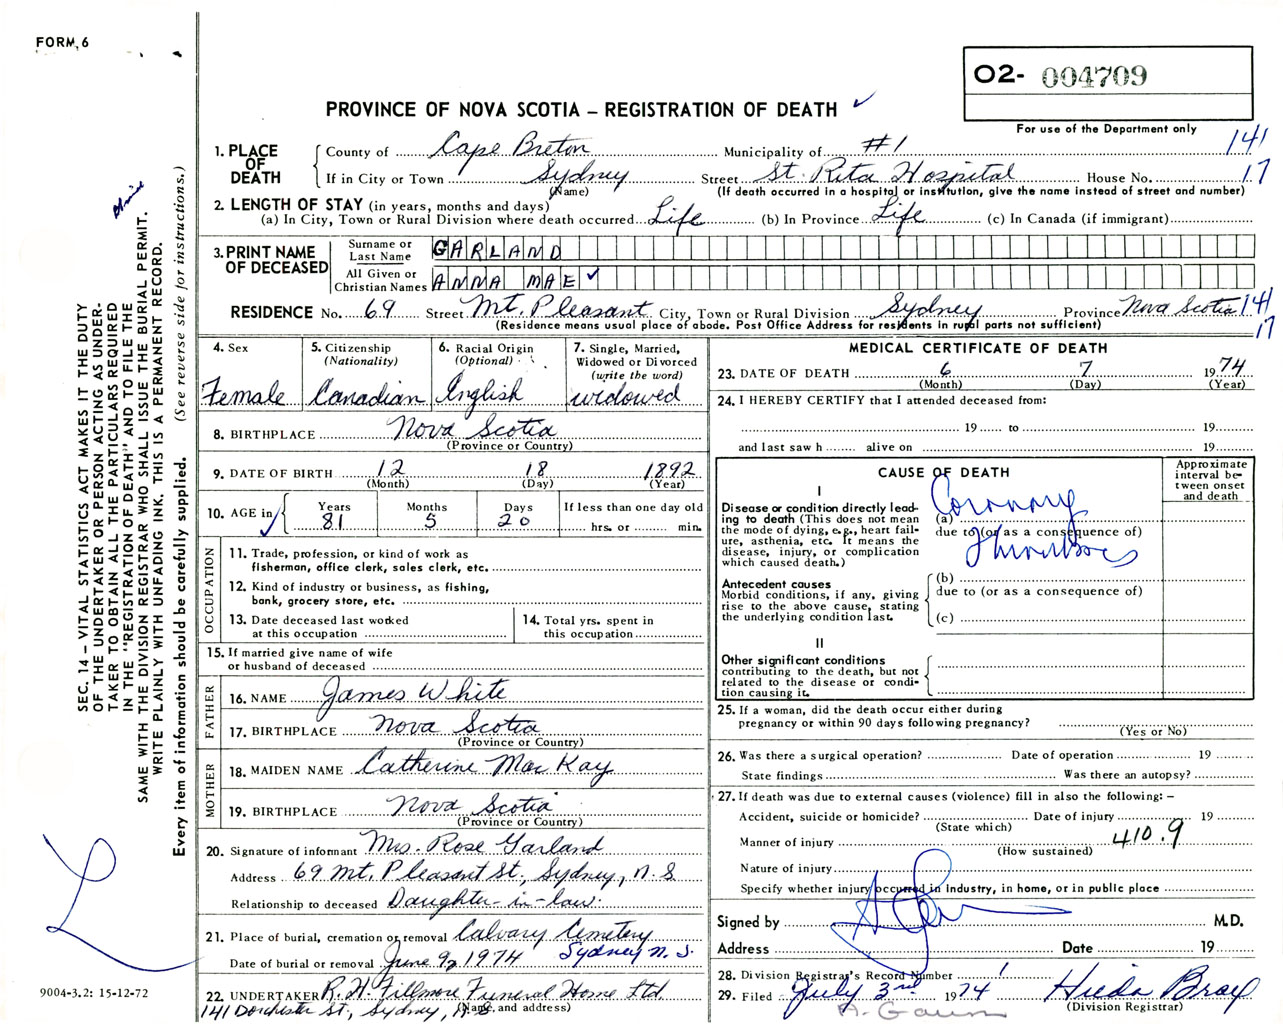 FORM, 6
O2- 004709
PROVINCE OF NOVA SCOTIA – REGISTRATION OF DEATH ✓
For use of the Department only
1. PLACE OF DEATH
County of Cape Breton Municipality of #1 141
If in City or Town Sydney Street St. Rita Hospital House No. 17
(Name) (If death occurred in a hospital or institution, give the name instead of street and number)
2. LENGTH OF STAY (in years, months and days)
(a) In City, Town or Rural Division where death occurred Life (b) In Province Life (c) In Canada (if immigrant)
3. PRINT NAME OF DECEASED
Surname or Last Name GARLAND
All Given or Christian Names ANNA MAE ✓
RESIDENCE No. 69 Street Mt. Pleasant City, Town or Rural Division Sydney Province Nova Scotia 141
(Residence means usual place of abode. Post Office Address for residents in rural parts not sufficient) 17
4. Sex
Female
5. Citizenship
(Nationality)
Canadian
6. Racial Origin
(Optional)
English
7. Single, Married,
Widowed or Divorced
(write the word)
widowed
8. BIRTHPLACE Nova Scotia
(Province or Country)
9. DATE OF BIRTH 12 18 1892
(Month) (Day) (Year)
10. AGE in ✓
Years Months Days If less than one day old
81 5 20 hrs. or min.
OCCUPATION
11. Trade, profession, or kind of work as
fisherman, office clerk, sales clerk, etc.
12. Kind of industry or business, as fishing,
bank, grocery store, etc.
13. Date deceased last worked
at this occupation
14. Total yrs. spent in
this occupation
15. If married give name of wife
or husband of deceased
FATHER
16. NAME James White
17. BIRTHPLACE Nova Scotia
(Province or Country)
MOTHER
18. MAIDEN NAME Catherine MacKay
19. BIRTHPLACE Nova Scotia
(Province or Country)
20. Signature of informant Mrs. Rose Garland
Address 69 Mt. Pleasant St., Sydney, N.S
Relationship to deceased Daughter-in-law.
21. Place of burial, cremation or removal Calvary Cemetery
Date of burial or removal June 9, 1974 Sydney N.S.
22. UNDERTAKER R. H. Fillmore Funeral Home Ltd.
(Name, and address)
141 Dorchester St., Sydney, N.S
MEDICAL CERTIFICATE OF DEATH
23. DATE OF DEATH 6 7 1974
(Month) (Day) (Year)
24. I HEREBY CERTIFY that I attended deceased from:
19 to 19
and last saw h alive on 19
CAUSE OF DEATH
Approximate
interval be-
tween onset
and death
I
Disease or condition directly lead-
ing to death (This does not mean
the mode of dying, e.g., heart fail-
ure, asthenia, etc. It means the
disease, injury, or complication
which caused death.)
(a) Coronary
due to (or as a consequence of)
Thrombosis
Antecedent causes
Morbid conditions, if any, giving
rise to the above cause, stating
the underlying condition last.
(b)
due to (or as a consequence of)
(c)
II
Other significant conditions
contributing to the death, but not
related to the disease or condi-
tion causing it.
25. If a woman, did the death occur either during
pregnancy or within 90 days following pregnancy?
(Yes or No)
26. Was there a surgical operation? Date of operation 19
State findings Was there an autopsy?
27. If death was due to external causes (violence) fill in also the following: –
Accident, suicide or homicide? Date of injury 19
(State which)
Manner of injury 410.9
(How sustained)
Nature of injury
Specify whether injury occurred in Industry, in home, or in public place
Signed by M.D.
Address Date 19
28. Division Registrar's Record Number 1
29. Filed July 3rd 1974 Hilda Bray
(Division Registrar)
SEC. 14 – VITAL STATISTICS ACT MAKES IT THE DUTY
OF THE UNDERTAKER OR PERSON ACTING AS UNDER-
TAKER TO OBTAIN ALL THE PARTICULARS REQUIRED
IN THE "REGISTRATION OF DEATH" AND TO FILE THE
SAME WITH THE DIVISION REGISTRAR WHO SHALL ISSUE THE BURIAL PERMIT.
WRITE PLAINLY WITH UNFADING INK. THIS IS A PERMANENT RECORD.
Every item of information should be carefully supplied. (See reverse side for instructions.)
9004-3.2: 15-12-72